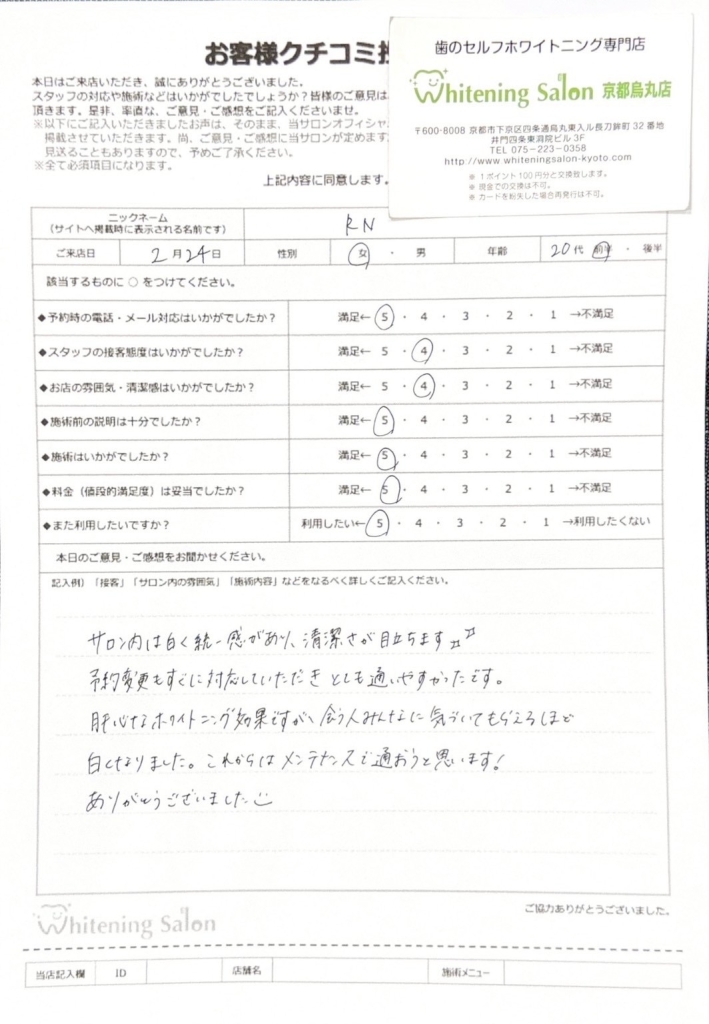 お客様クチコミ
歯のセルフホワイトニング専門店
Whitening Salon 京都烏丸店
〒600-8008 京都市下京区四条通烏丸東入ル長刀鉾町 32 番地
井門四条東洞院ビル 3F
TEL 075-223-0358
http://www.whiteningsalon-kyoto.com
※ 1ポイント100円分と交換致します。
※ 現金での交換は不可。
※ カードを紛失した場合再発行は不可。
本日はご来店いただき、誠にありがとうございました。
スタッフの対応や施術などはいかがでしたでしょうか？皆様のご意見は
頂きます。是非、率直な、ご意見・ご感想をご記入くださいませ。
※以下にご記入いただきましたお声は、そのまま、当サロンオフィシャ
掲載させていただきます。尚、ご意見・ご感想に当サロンが定めます
見送ることもありますので、予めご了承ください。
※全て必須項目になります。
上記内容に同意します。
ニックネーム
(サイトへ掲載時に表示される名前です)
RN
ご来店日 2月24日 性別 女 ・ 男 年齢 20代 前半 ・ 後半
該当するものに ○ をつけてください。
◆予約時の電話・メール対応はいかがでしたか？ 満足← 5 ・ 4 ・ 3 ・ 2 ・ 1 →不満足
◆スタッフの接客態度はいかがでしたか？ 満足← 5 ・ 4 ・ 3 ・ 2 ・ 1 →不満足
◆お店の雰囲気・清潔感はいかがでしたか？ 満足← 5 ・ 4 ・ 3 ・ 2 ・ 1 →不満足
◆施術前の説明は十分でしたか？ 満足← 5 ・ 4 ・ 3 ・ 2 ・ 1 →不満足
◆施術はいかがでしたか？ 満足← 5 ・ 4 ・ 3 ・ 2 ・ 1 →不満足
◆料金（値段的満足度）は妥当でしたか？ 満足← 5 ・ 4 ・ 3 ・ 2 ・ 1 →不満足
◆また利用したいですか？ 利用したい← 5 ・ 4 ・ 3 ・ 2 ・ 1 →利用したくない
本日のご意見・ご感想をお聞かせください。
記入例）「接客」「サロン内の雰囲気」「施術内容」などをなるべく詳しくご記入ください。
サロン内は白く統一感があり、清潔さが目立ちます
予約変更もすぐに対応していただきとても通いやすかったです。
肝心なホワイトニング効果ですが、会う人みんなに気づいてもらえるほど
白くなりました。これからはメンテナンスで通おうと思います!
ありがとうございました
Whitening Salon
ご協力ありがとうございました。
当店記入欄 ID 店舗名 施術メニュー